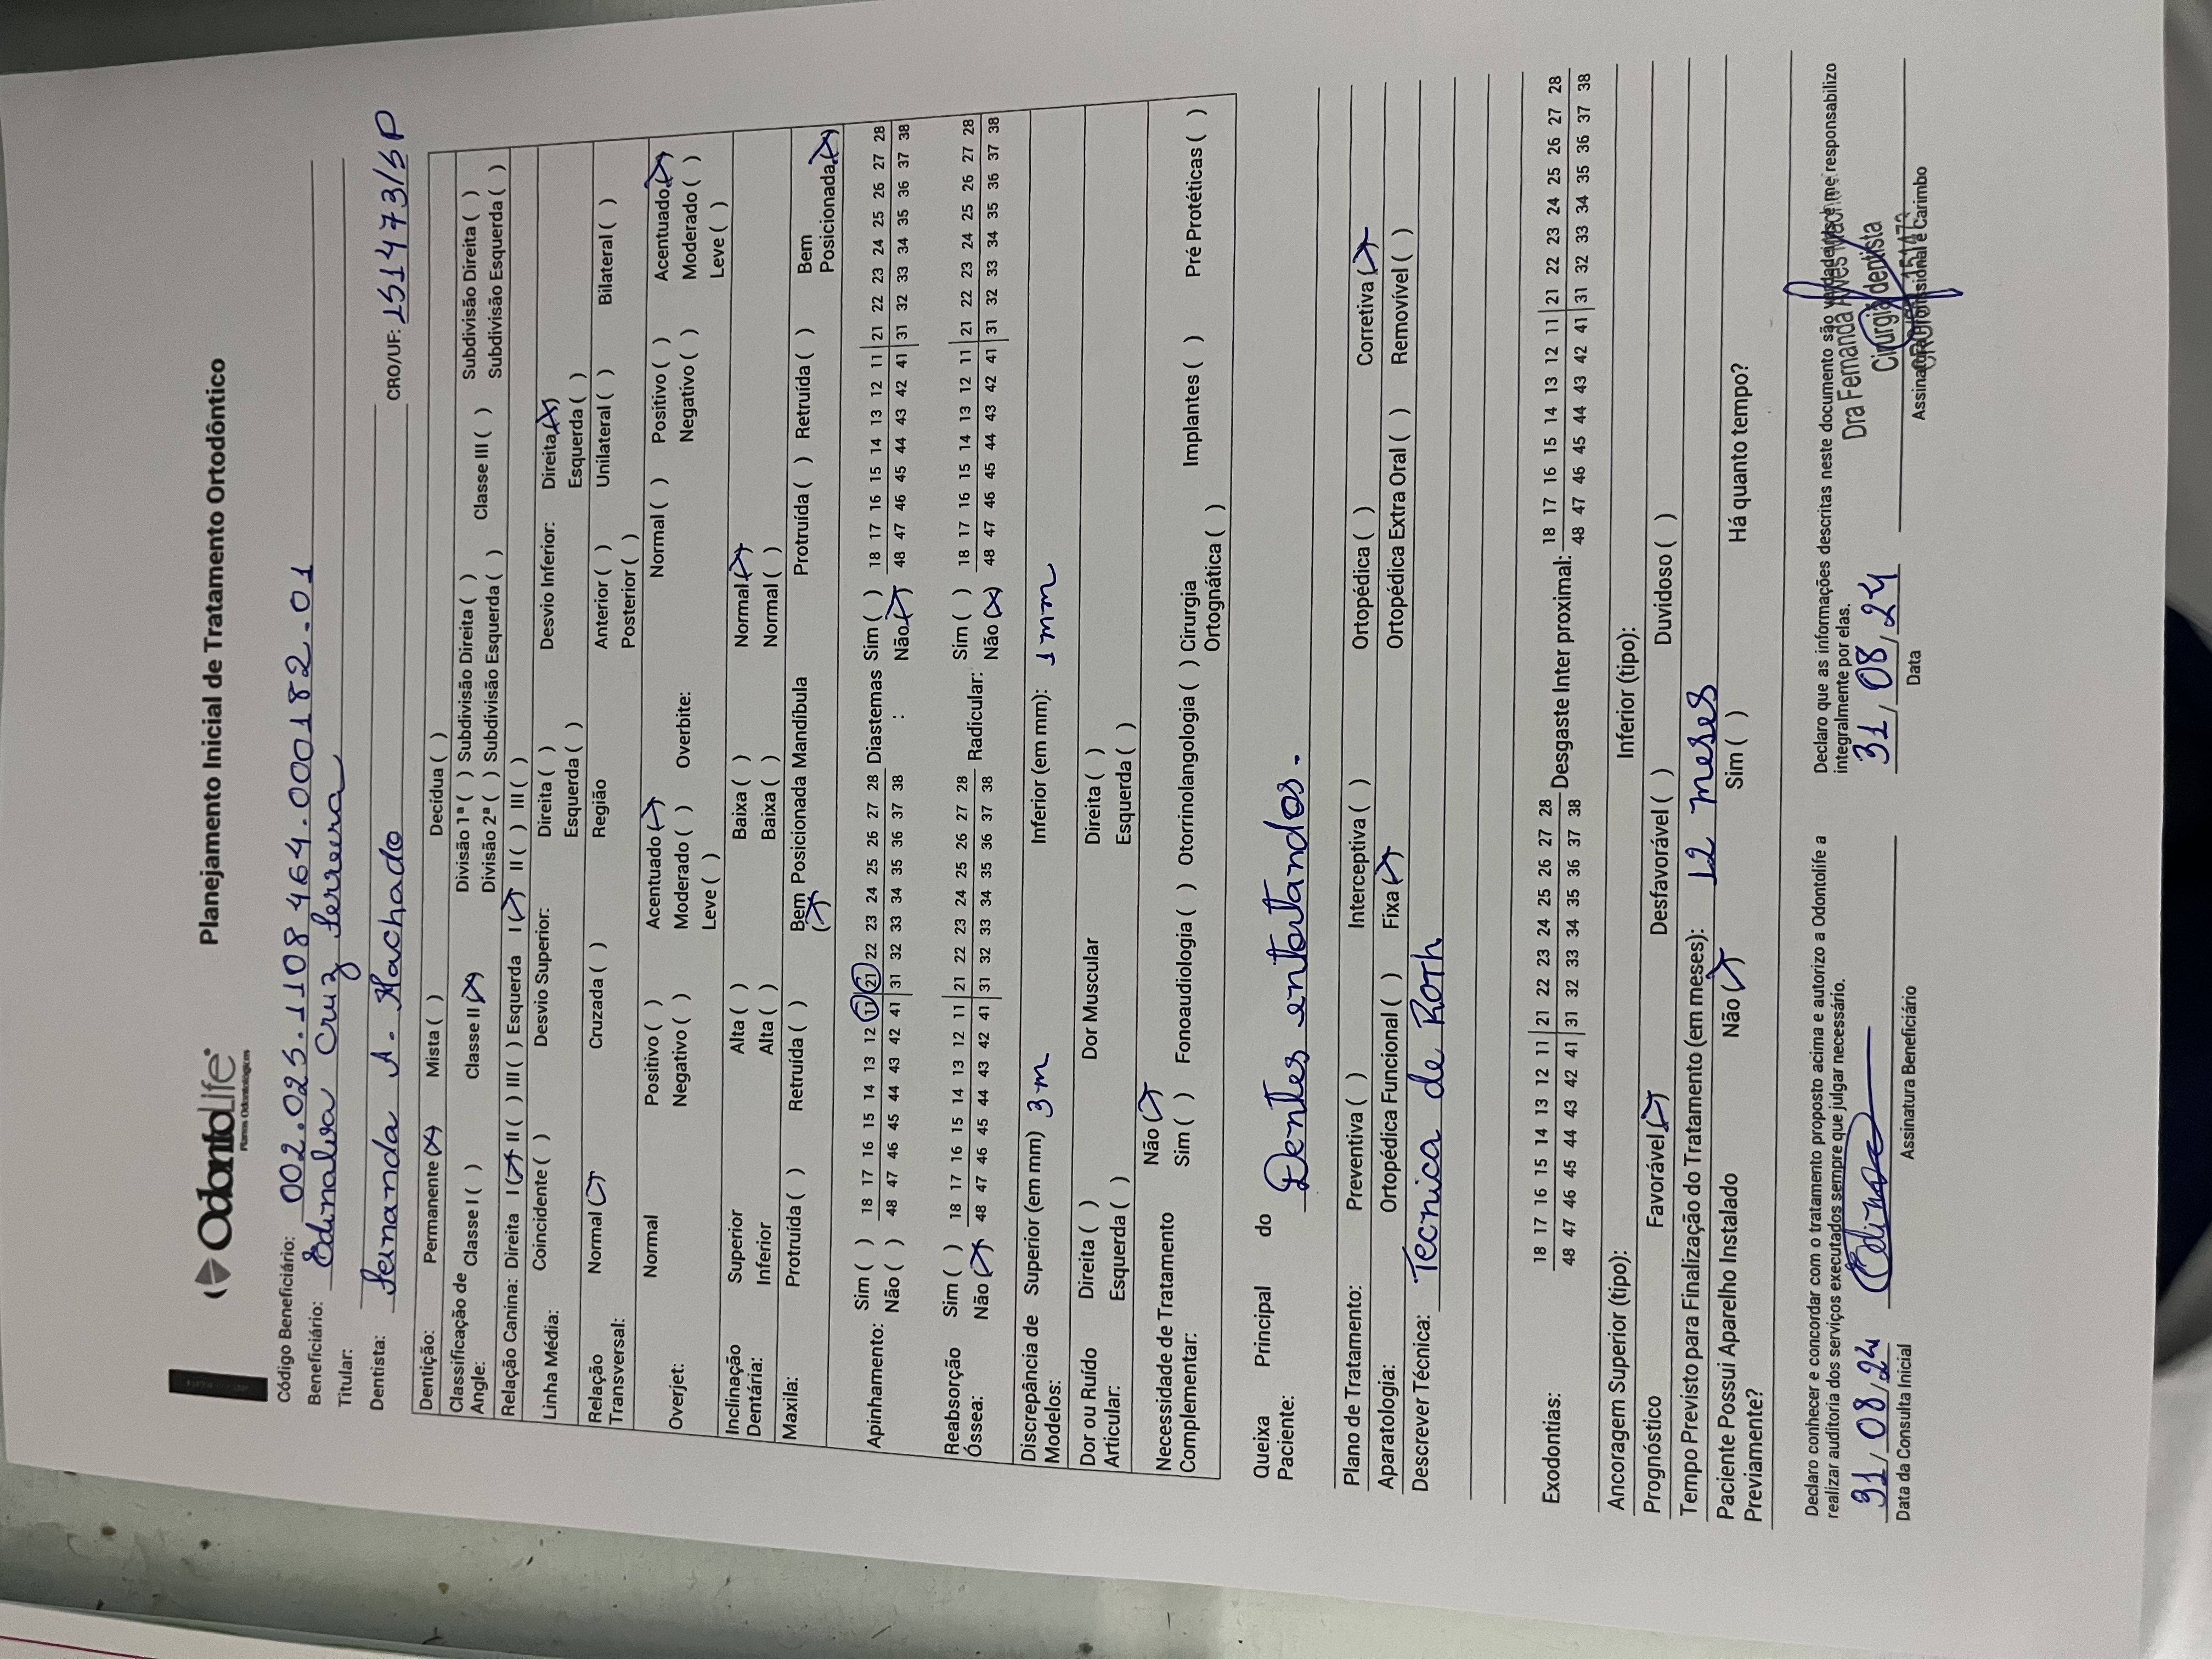 OdontoLife
Planos Odontológicos
Planejamento Inicial de Tratamento Ortodôntico
Código Beneficiário: 002.025.1108464.000182-01
Beneficiário: Edinalva Cruz Ferreira
Titular:
Dentista: Fernanda A. Machado CRO/UF: 151473/SP
Dentição: Permanente (X) Mista ( ) Decídua ( )
Classificação de Angle: Classe I ( ) Classe II (X) Divisão 1ª ( ) Subdivisão Direita ( ) Classe III ( ) Subdivisão Direita ( )
Divisão 2ª ( ) Subdivisão Esquerda ( ) Subdivisão Esquerda ( )
Relação Canina: Direita I (X) II ( ) III ( ) Esquerda I (X) II ( ) III ( )
Linha Média: Coincidente ( ) Desvio Superior: Direita ( ) Desvio Inferior: Direita (X)
Esquerda ( ) Esquerda ( )
Relação Transversal: Normal (X) Cruzada ( ) Região Anterior ( ) Unilateral ( ) Bilateral ( )
Posterior ( )
Overjet: Normal Positivo ( ) Acentuado (X) Overbite: Normal ( ) Positivo ( ) Acentuado (X)
Negativo ( ) Moderado ( ) Negativo ( ) Moderado ( )
Leve ( ) Leve ( )
Inclinação Dentária: Superior Alta ( ) Baixa ( ) Normal (X)
Inferior Alta ( ) Baixa ( ) Normal ( )
Maxila: Protruída ( ) Retruída ( ) Bem Posicionada (X) Mandíbula Protruída ( ) Retruída ( ) Bem Posicionada (X)
Apinhamento: Sim ( ) 18 17 16 15 14 13 12 11 | 21 22 23 24 25 26 27 28 Diastemas : Sim ( ) 18 17 16 15 14 13 12 11 | 21 22 23 24 25 26 27 28
Não ( ) 48 47 46 45 44 43 42 41 | 31 32 33 34 35 36 37 38 Não (X) 48 47 46 45 44 43 42 41 | 31 32 33 34 35 36 37 38
Reabsorção Óssea: Sim ( ) 18 17 16 15 14 13 12 11 | 21 22 23 24 25 26 27 28 Radicular: Sim ( ) 18 17 16 15 14 13 12 11 | 21 22 23 24 25 26 27 28
Não (X) 48 47 46 45 44 43 42 41 | 31 32 33 34 35 36 37 38 Não (X) 48 47 46 45 44 43 42 41 | 31 32 33 34 35 36 37 38
Discrepância de Modelos: Superior (em mm) 3m Inferior (em mm): 1 mm
Dor ou Ruído Articular: Direita ( ) Dor Muscular Direita ( )
Esquerda ( ) Esquerda ( )
Necessidade de Tratamento Complementar: Não (X)
Sim ( ) Fonoaudiologia ( ) Otorrinolangologia ( ) Cirurgia Ortognática ( ) Implantes ( ) Pré Protéticas ( )
Queixa Principal do Paciente: Dentes entortandos.
Plano de Tratamento: Preventiva ( ) Interceptiva ( ) Ortopédica ( ) Corretiva (X)
Aparatologia: Ortopédica Funcional ( ) Fixa (X) Ortopédica Extra Oral ( ) Removível ( )
Descrever Técnica: Tecnica de Roth
Exodontias: 18 17 16 15 14 13 12 11 | 21 22 23 24 25 26 27 28 Desgaste Inter proximal: 18 17 16 15 14 13 12 11 | 21 22 23 24 25 26 27 28
48 47 46 45 44 43 42 41 | 31 32 33 34 35 36 37 38 48 47 46 45 44 43 42 41 | 31 32 33 34 35 36 37 38
Ancoragem Superior (tipo): Inferior (tipo):
Prognóstico Favorável (X) Desfavorável ( ) Duvidoso ( )
Tempo Previsto para Finalização do Tratamento (em meses): 12 meses
Paciente Possui Aparelho Instalado Previamente? Não (X) Sim ( ) Há quanto tempo?
Declaro conhecer e concordar com o tratamento proposto acima e autorizo a Odontolife a
realizar auditoria dos serviços executados sempre que julgar necessário.
31/08/24 Edinal
Data da Consulta Inicial Assinatura Beneficiário
Declaro que as informações descritas neste documento são verdadeiras e me responsabilizo
integralmente por elas.
Dra Fernanda Alves Machado
Cirurgiã dentista
31/08/24 CRO/SP 151473
Data Assinatura Profissional e Carimbo